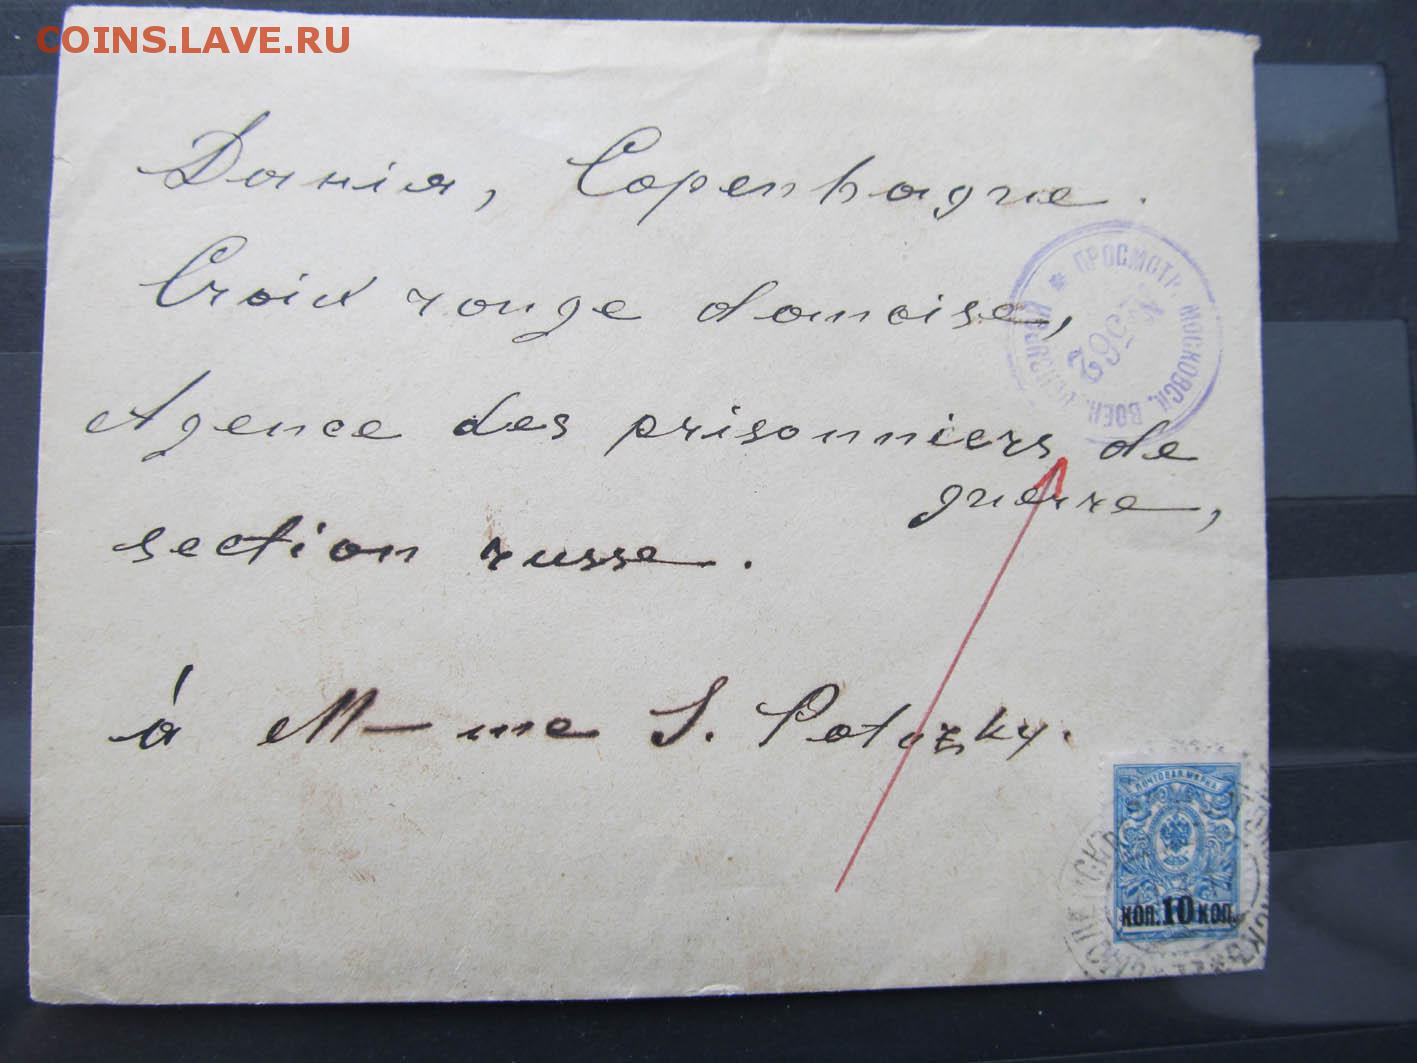 COINS.LAVE.RU
Данія, Copenhague.
Croix rouge danoise,
Agence des prisonniers de
guerre,
section russe.
á M-me S. Potozky.
* ПРОСМОТР. МОСКОВСК. ВОЕН. ЦЕНЗУРОЙ
562
ПОЧТОВАЯ МАРКА
КОП. 10 КОП.